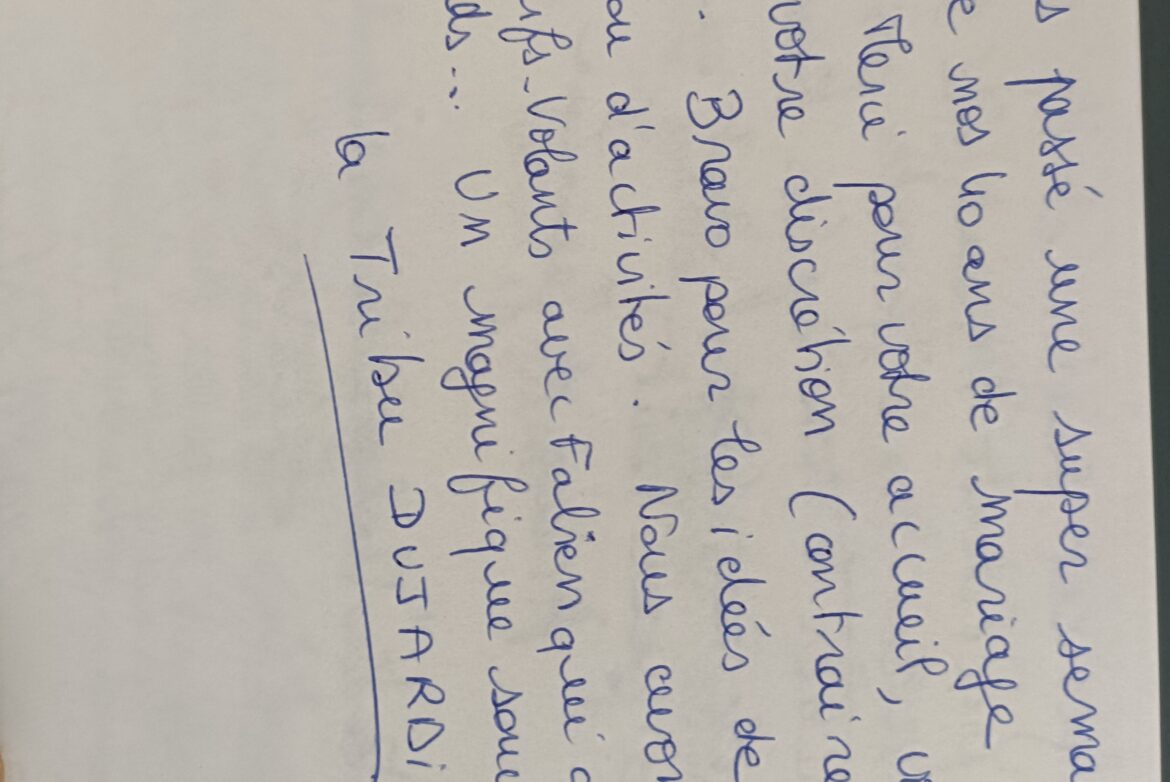 s passé une super sema
e nos 40 ans de mariage
Merci pour votre accueil, v
votre discrétion (contraire
. Bravo pour les idées de
ou d'activités. Nous avon
ifs-Volants avec Fabien qui a
ds... Un magnifique sou
la Tribu DUJARDi